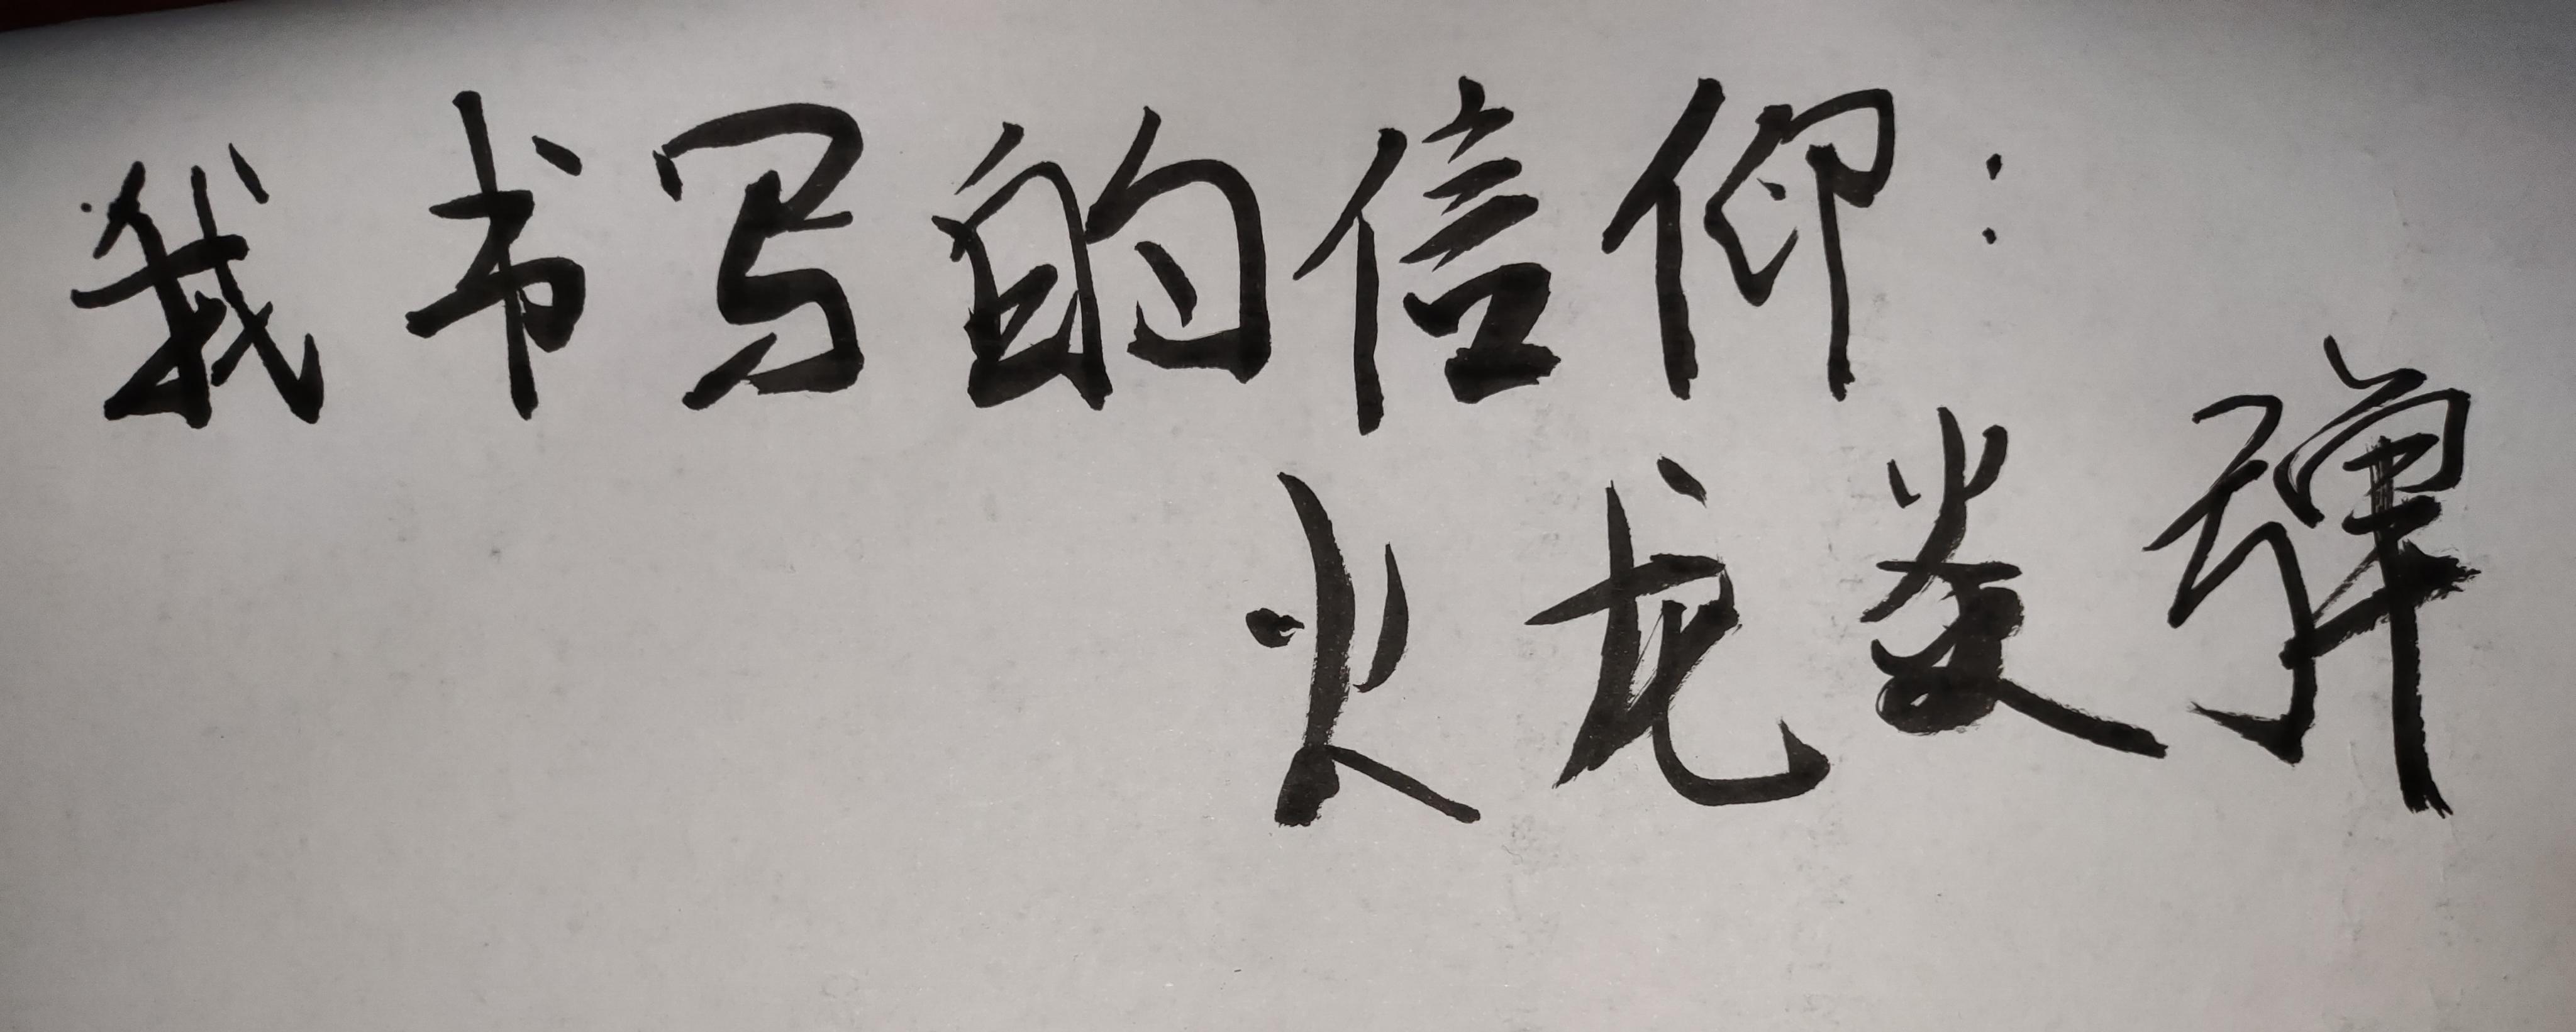 我书写的信仰:
火龙炎弹